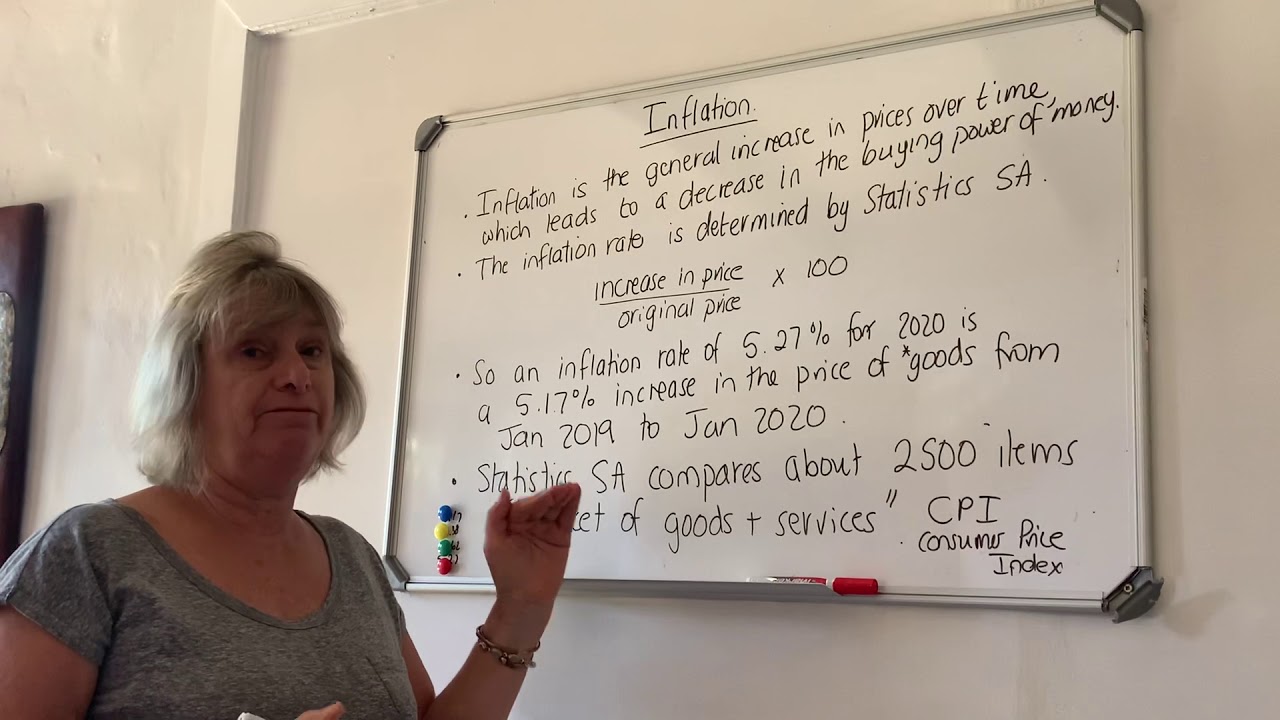 Inflation.
. Inflation is the general increase in prices over time,
which leads to a decrease in the buying power of money.
. The inflation rate is determined by Statistics SA.
increase in price
original price
x 100
. So an inflation rate of 5.27% for 2020 is
a 5.17% increase in the price of *goods from
Jan 2019 to Jan 2020.
. Statistics SA compares about 2500 items
of goods + services"
CPI
Consumer Price
Index